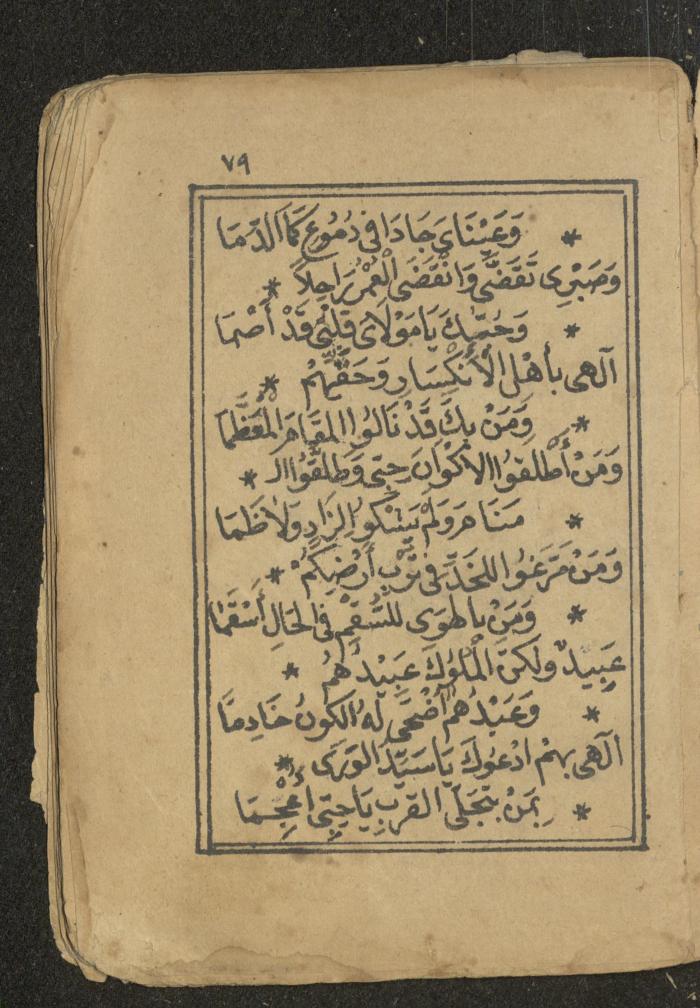 ٧٩
* وَعَيْنَايَ جَادَا فِى دُمُوعٍ كَمَا الدِّمَا
وَصَبْرِى تَقَضَّى وَانْقَضَى الْعُمْرُ رَاحِلاً *
* وَحُبُّكَ يَا مَوْلَاىَ قَلْبِى قَدْ أَصْمَا
آلهى بأهْلِ الْأَنْكِسَارِ وَحَقِّهِمْ *
* وَمَنْ بِكَ قَدْ نَالُوا المَقَامَ الْمُعَظَّمَا
وَمَنْ أَطْلَقُوا الأَكْوَانَ حِبِّى وَطَلَّقُوا الـ *
* مَنَامَ وَلَمْ يَشْكُوا لِزَادٍ وَلاَ ظَمَا
وَمَنْ مَرَّغُوا للخَدِّ فى تُرْبِ أَرْضِكُمْ *
* وَمَنْ بِالهَوَى للسُّقْمِ فى الحَالِ أَسْقَمَا
عَبِيدٌ وَلَكِنَّ الْمُلُوكَ عَبِيْدُهُمُ *
* وَعَبْدُهُمُ أَضْحَى لَهُ الكَوْنُ خَادِمَا
آلهى بِهِمْ ادْعُوكَ يَا سَيِّدَ الوَرَى *
* بِمَنْ بِتَجَلّى القربِ يَا حِبِّى أُعْجِمَا